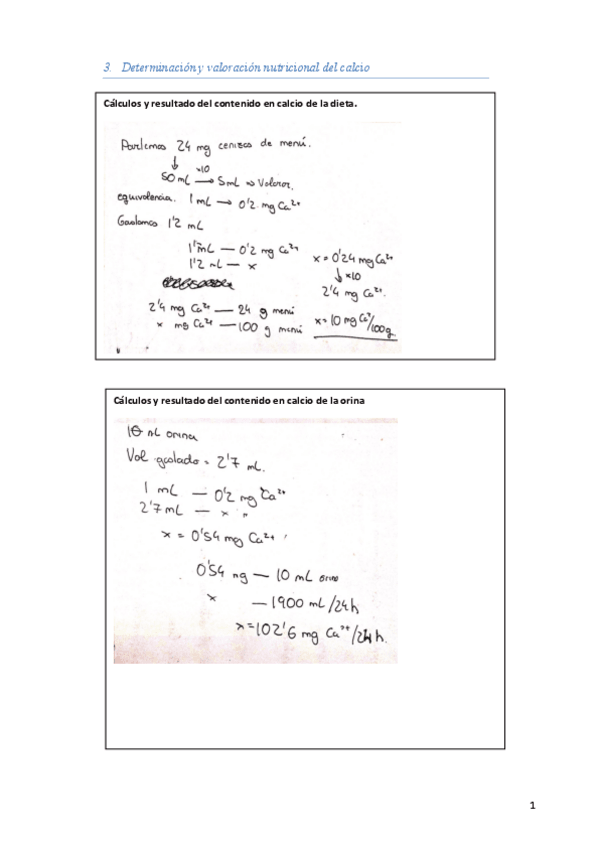 3. Determinación y valoración nutricional del calcio
Cálculos y resultado del contenido en calcio de la dieta.
Partimos 24 mg cenizas de menú.
↓ x10
50 mL → 5 mL ⇒ Valorar.
equivalencia. 1 mL → 0'2 mg Ca²⁺
Gastamos 1'2 mL
1 mL — 0'2 mg Ca²⁺
1'2 mL — x
x = 0'24 mg Ca²⁺
↓ x10
2'4 mg Ca²⁺.
2'4 mg Ca²⁺ — 24 g menú
x mg Ca²⁺ — 100 g menú
x = 10 mg Ca²⁺/100g.
Cálculos y resultado del contenido en calcio de la orina
10 mL orina
Vol gastado = 2'7 mL.
1 mL — 0'2 mg Ca²⁺
2'7 mL — x "
x = 0'54 mg Ca²⁺
0'54 mg — 10 mL orina
x — 1900 mL/24h
x = 102'6 mg Ca²⁺/24h.
1